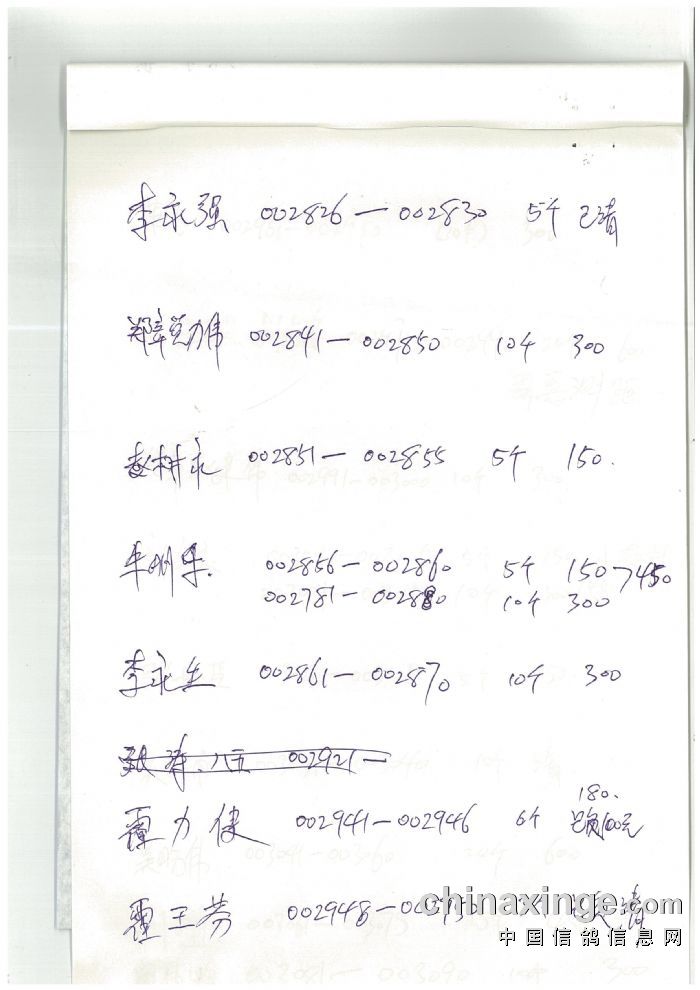 李永强 002826—002830 5个 已清
郑章克力伟 002841—002850 10个 300
赵树永 002851—002855 5个 150.
牛明生. 002856—002860 5个 150 > 450
002781—002880 10个 300
李永生 002861—002870 10个 300
八五 002921—
180.
霍力健 002941—002946 6个 100元
霍王芬 002948—
chinaxinge.com
中国信鸽信息网